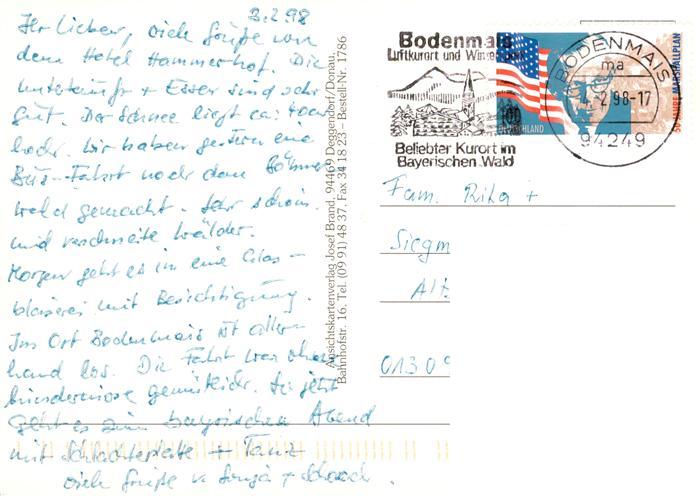 3.2.98
Ihr Lieben, viele Grüße von
dem Hotel Hammerhof. Die
Unterkunft + Essen sind sehr
gut. Der Schnee liegt ca:
hoch. Wir haben gestern eine
Bus-Fahrt nach dem Böhmer
wald gemacht. Sehr schön
und verschneite Wälder.
Morgen geht es in eine Glas-
bläserei mit Besichtigung.
Im Ort Bodenmais ist aller-
hand los. Die Fahrt war ohne
jetzt
geht es zum bayrischen Abend
mit Schlachteplatte + Tanz
viele Grüße v. Sonja +
Ansichtskartenverlag Josef Brand, 94469 Deggendorf/Donau,
Bahnhofstr. 16, Tel. (09 91) 48 37, Fax 34 18 23 – Bestell-Nr. 1786
Bodenmais
Luftkurort und Wintersport
Beliebter Kurort im
Bayerischen Wald
100
DEUTSCHLAND
50 JAHRE MARSHALLPLAN
BODENMAIS
ma
2.98-17
94249
Fam. Rita +
Siegm
Alt
0130